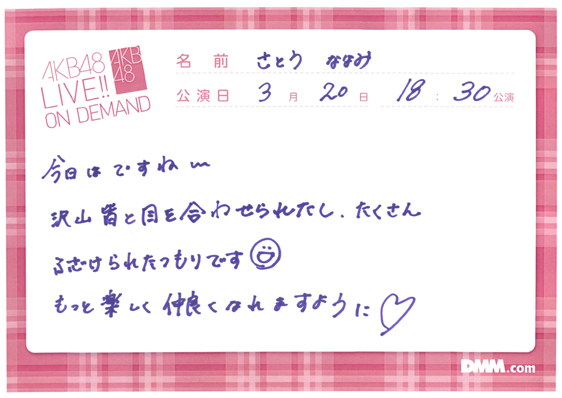 AKB48
LIVE!!
ON DEMAND
AKB
48
名前 さとう ななみ
公演日 3月20日 18:30公演
今日はですね〜
沢山皆と目を合わせられたし、たくさん
ふざけられたつもりです
もっと楽しく仲良くなれますように♡
DMM.com